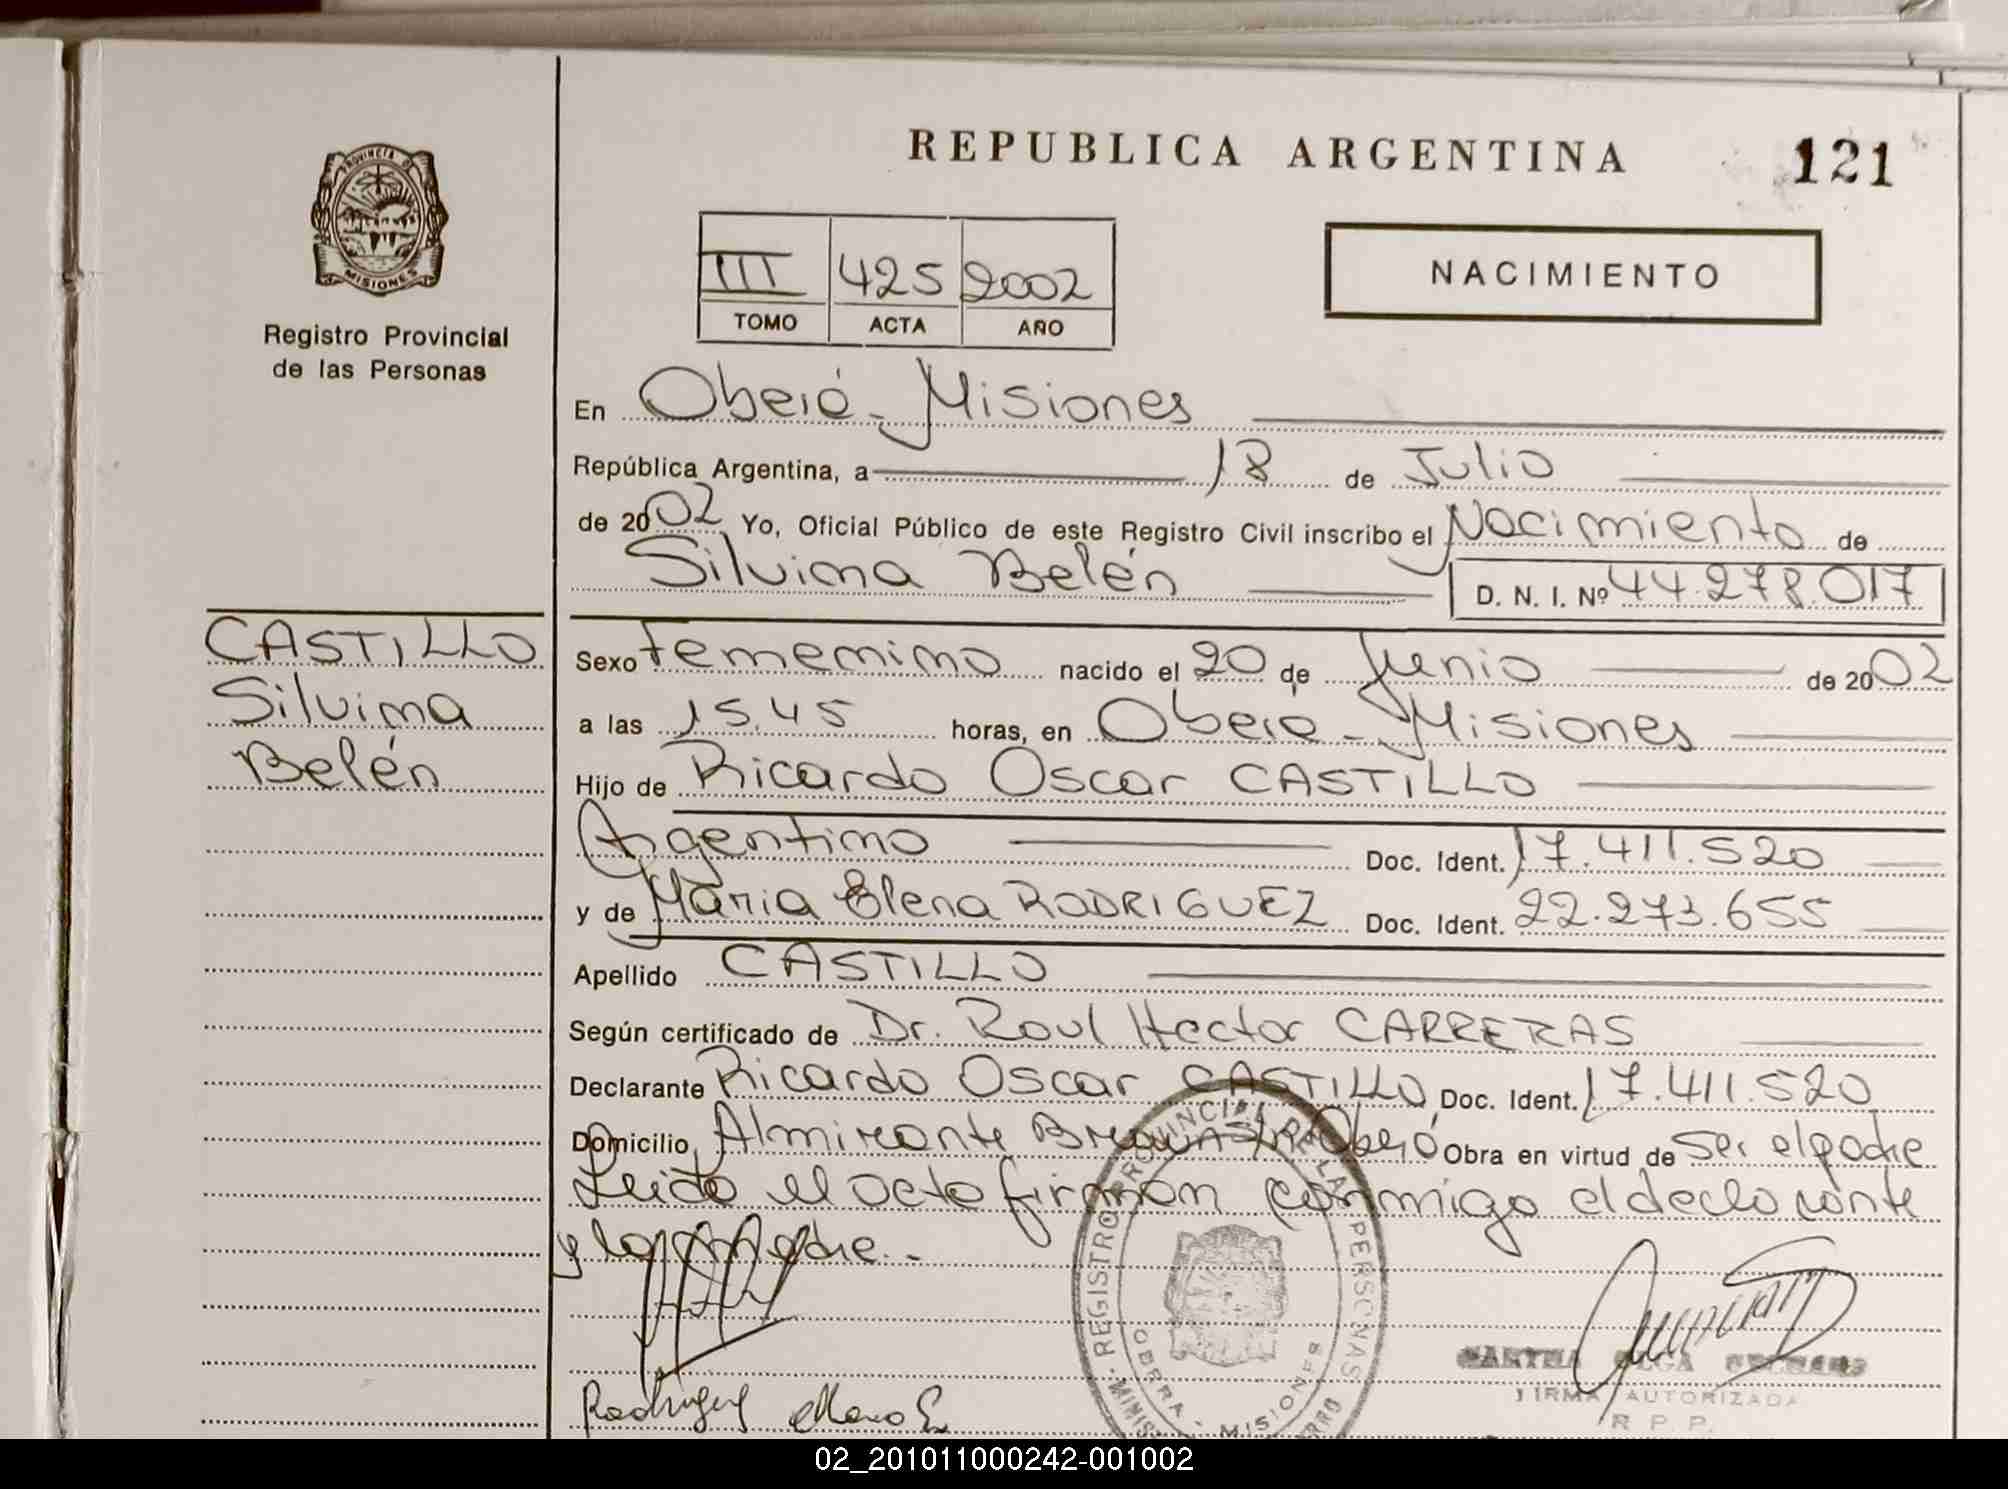 REPUBLICA ARGENTINA
121
PROVINCIA DE
MISIONES
Registro Provincial
de las Personas
III 425 2002
TOMO ACTA AÑO
NACIMIENTO
En Oberá - Misiones
República Argentina, a 18 de Julio
de 2002 Yo, Oficial Público de este Registro Civil inscribo el Nacimiento de
Silvina Belén D. N. I. Nº 44.278.017
CASTILLO
Silvina
Belén
Sexo femenino nacido el 20 de Junio de 2002
a las 15.45 horas, en Oberá - Misiones
Hijo de Ricardo Oscar CASTILLO
Argentino Doc. Ident. 17.411.520
y de Maria Elena RODRIGUEZ Doc. Ident. 22.273.655
Apellido CASTILLO
Según certificado de Dr. Raul Hector CARRERAS
Declarante Ricardo Oscar CASTILLO Doc. Ident. 17.411.520
Domicilio Almirante Brown Oberá Obra en virtud de ser el padre
Leida el acta firman conmigo el declarante
y la madre.-
REGISTRO PROVINCIAL DE LAS PERSONAS
OBERA - MISIONES
MARTHA OLGA
FIRMA AUTORIZADA
R. P. P.
Rodriguez Maria E
02_201011000242-001002